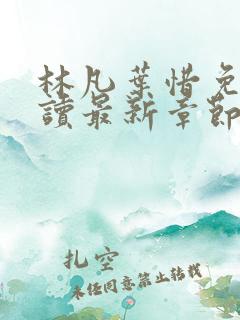 林凡葉惜免
讀最新章節
扎空
未经同意禁止转载